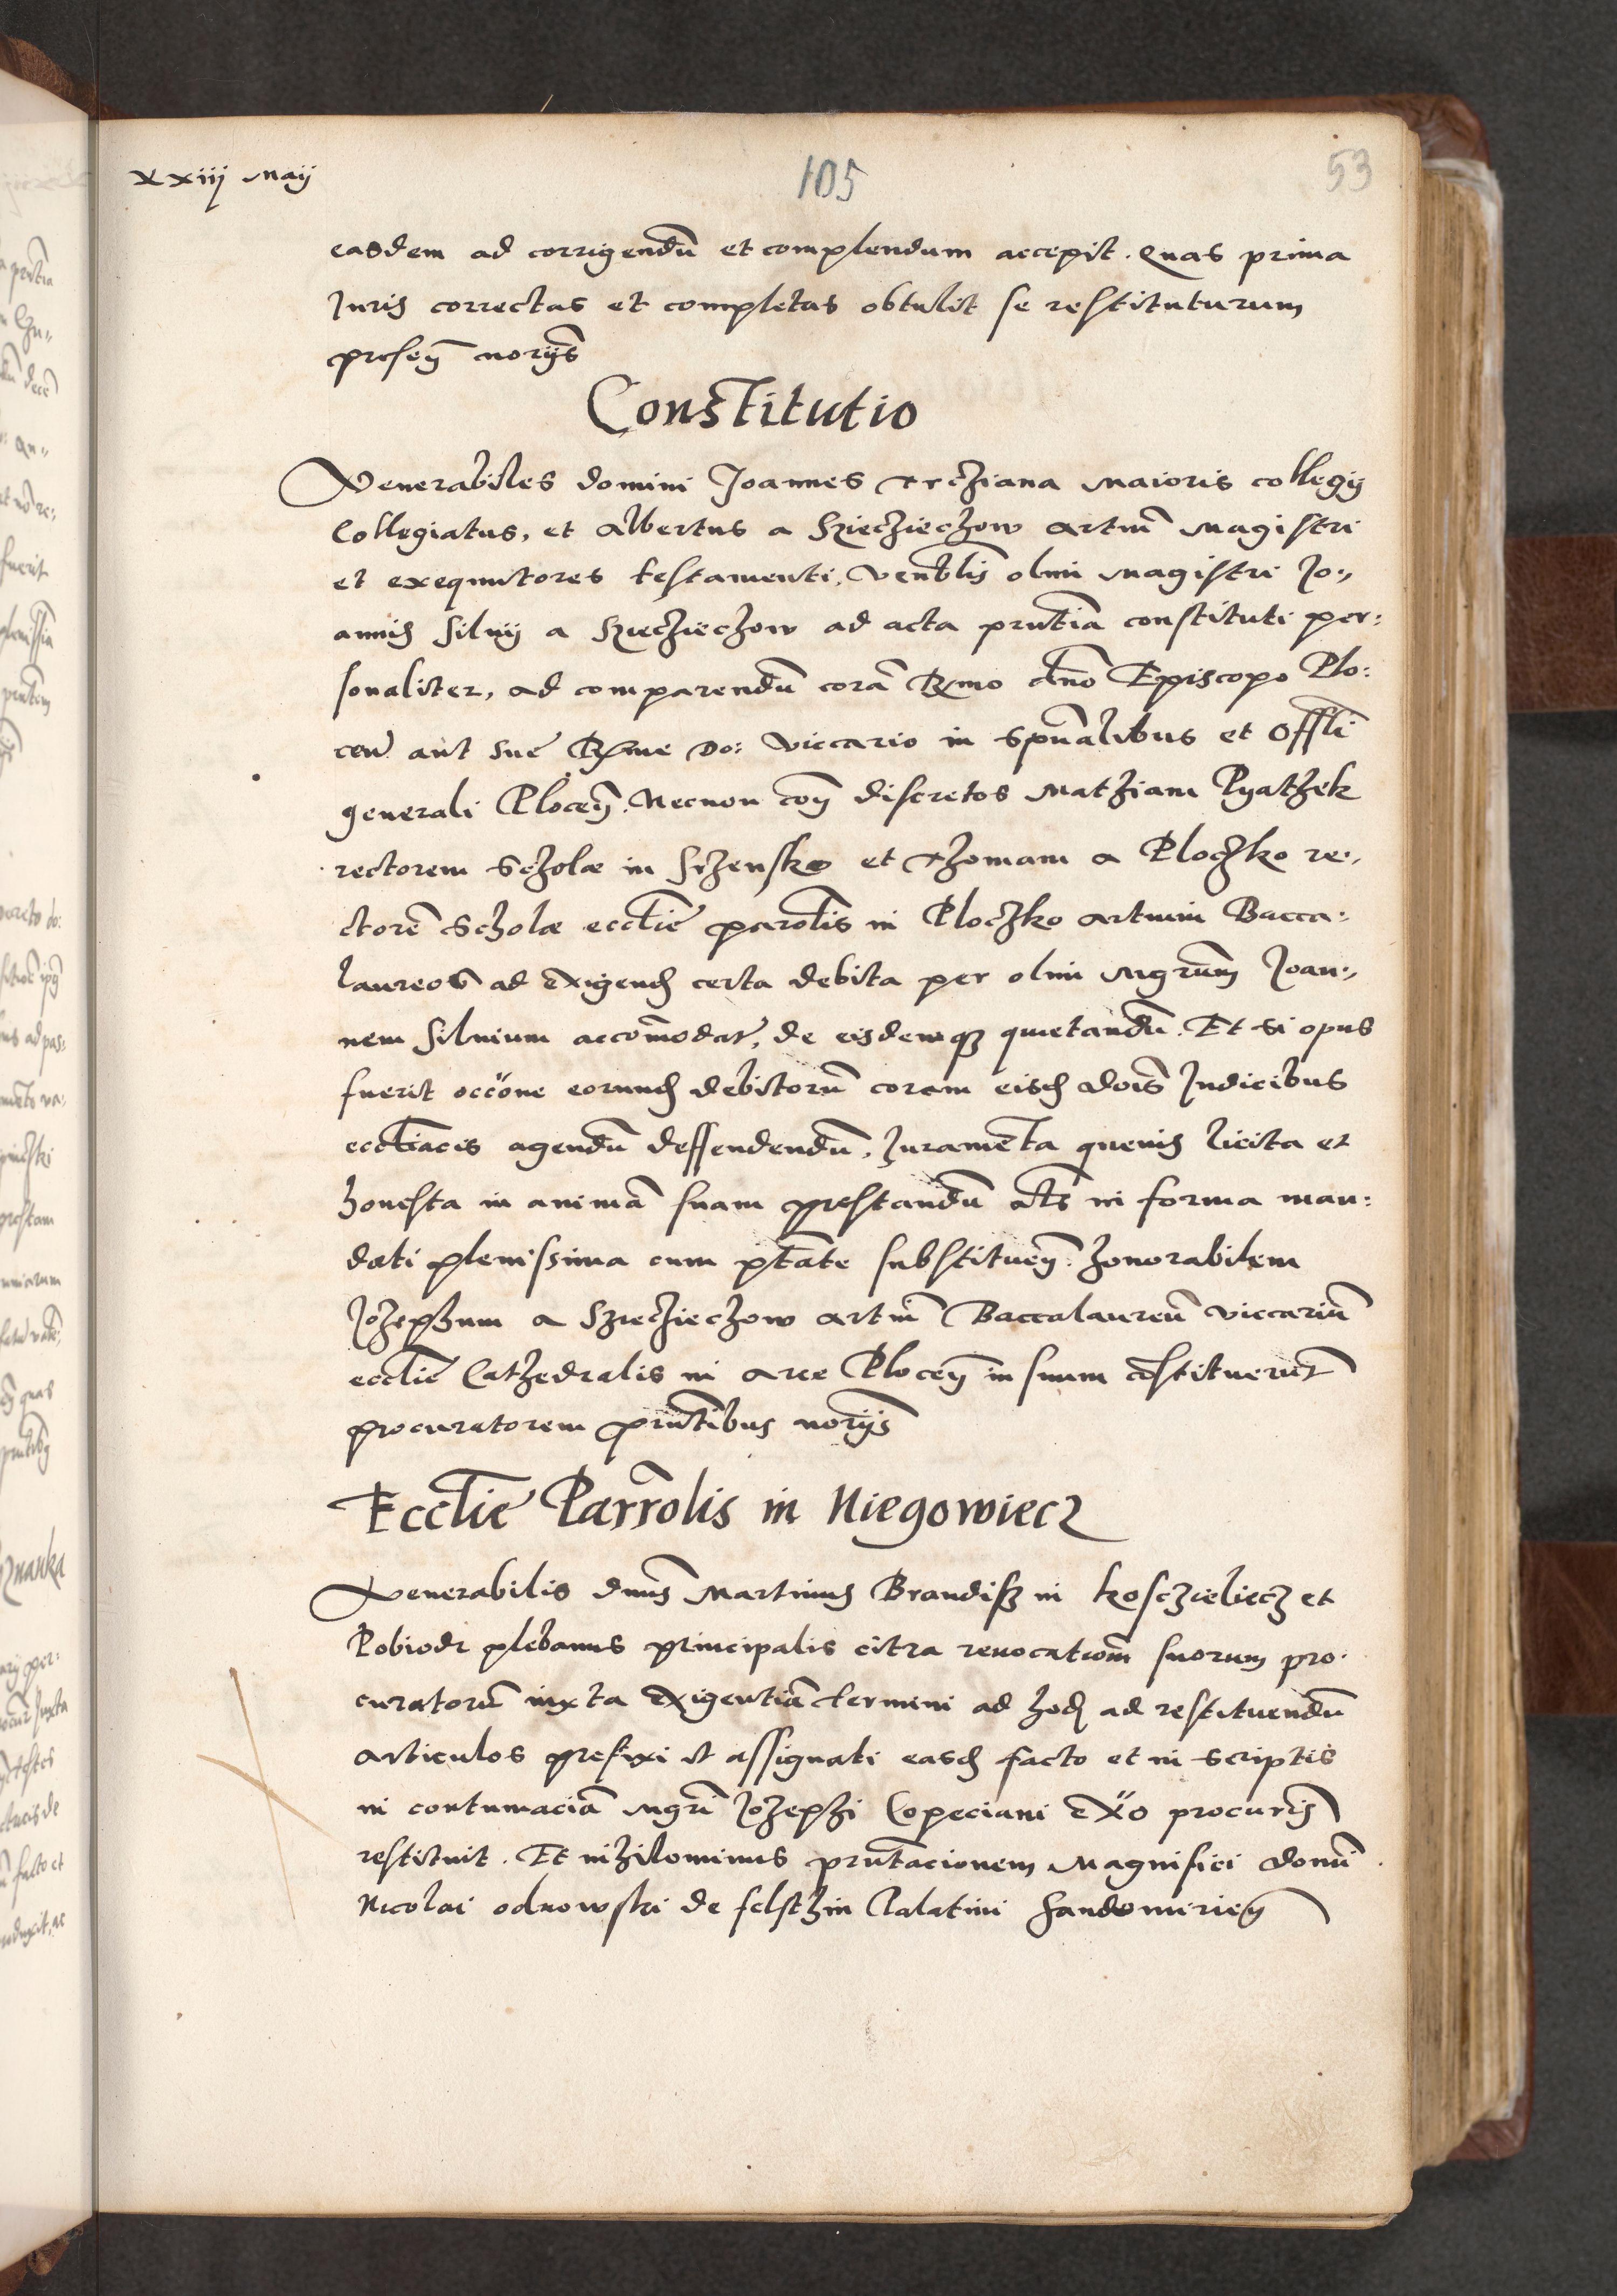 xxiij Maij
105
53
easdem ad corrigendū et complendum accepit. Quas prima
Iuris correctas et completas obtulit se restituturum
presen̄ norijs
Constitutio
Venerabiles domini Joannes Trcziana Maioris collegij
Collegiatus, et Albertus a Sziecziechow artiū Magistri
et exequutores testamenti, venblis olim Magistri Jo-,
annis Siluij a Sziecziechow ad acta prntia constituti per:
sonaliter, ad comparendū corā Rmo dno Episcopo Plo:
cen aut sue Rme Do: viccario in spualibus et Offli
generali Plocen̄. Necnon con̄ discretos Mathiam Pyathek
rectorem Scholæ in Srzensko et Thomam a Ploczko re-,
ctorē Scholæ ecclie parolis in Ploczko artium Bacca:
laureos ad exigend certa debita per olim Mgrum Joan-,
nem Siluium accōmodat, de eisdemq quietandū. Et si opus
fuerit occone eorund debitorū coram eisd dois Judicibus
eccliacis agendū deffendendū, Iuramēta queuis licita et
honesta in animā suam prestandū als in forma man:
dati plenissima cum ptate substituen̄. honorabilem
Jozephum a Sziecziechow artiū Baccalaureū viccariū
ecclie Cathedralis in arce Plocen̄ in suum cōstituerūt
procuratorem prntibus norijs
Ecclie Parrolis in Niegowiecz
Venerabilis dnus Martinus Brandisz in Kosczieliecz et
Pobiodr plebanus principalis citra reuocationē suorum pro:
curatorū iuxta exigentiā termini ad hod ad restituendū
articulos prefixi et assignati easd facto et in scriptis
in contumaciā Mgri Jozephi Copeciani exo procuris
restituit. Et nihilominus prntacionem Magnifici domi
Nicolai odnowski de felsthin Palatini Sandomirien̄